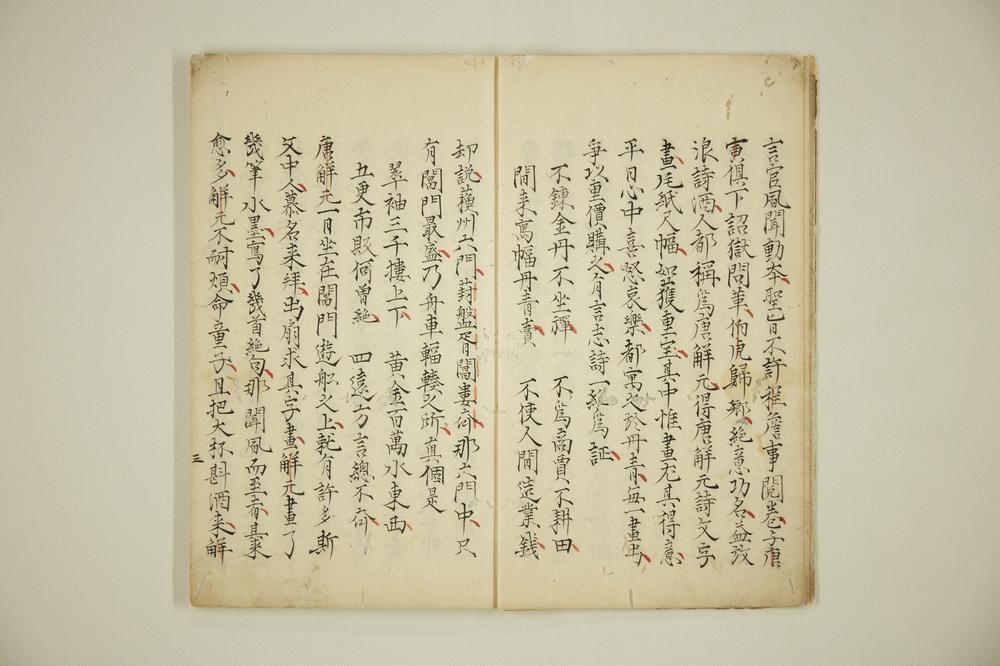 言官風聞動本聖旨不許程詹事閱卷子唐
寅俱下詔獄問革伯虎歸鄉絶意功名益放
浪詩酒人都稱爲唐解元得唐解元詩文字
畫片紙尺幅如獲重宝其中惟畫尤其得意
平日心中喜怒哀樂都寓之於丹青每一畫出
爭以重價購之有言志詩一絶爲証
不鍊金丹不坐禪　不爲商賈不耕田
閒来寫幅丹青賣　不使人間造業錢
却説蘓州六門葑盤胥閶婁斉那六門中只
有閶門最盛乃舟車輻輳之所真個是
翠袖三千樓上下　黃金百萬水東西
五更市販何曾絶　四遠方言總不斉
唐解元一日坐在閶門遊船之上就有許多斯
文中人慕名来拜出扇求其字畫解元畫了
幾筆水墨寫了幾首絶句那聞風而至者其来
愈多解元不耐煩命童子且把大杯斟酒来解
三